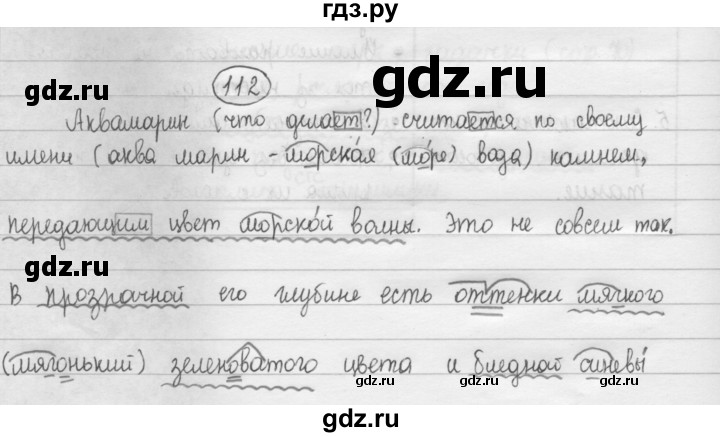 гдз.ру
112
gdz.ru gdz.ru
Аквамарин (что делает?) считается по своему
имени (аква марин - морская (море) вода) камнем,
gdz.ru
передающим цвет морской волны. Это не совсем так.
gdz.ru gdz.ru
В прозрачной его глубине есть оттенки мягкого
(мягонький) зеленоватого цвета и бледной синевы
gdz.ru
gdz.ru gdz.ru